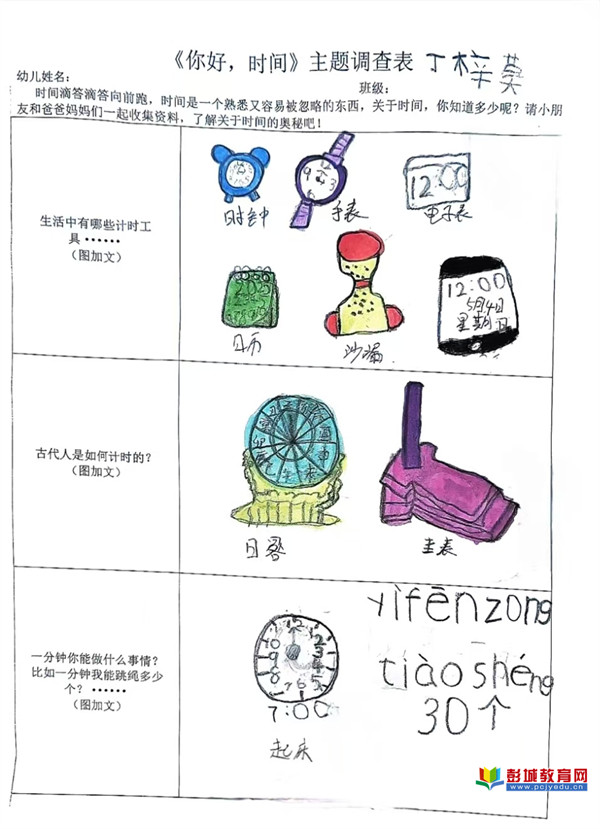 《你好，时间》主题调查表 丁梓萸
幼儿姓名： 班级：
时间滴答滴答向前跑，时间是一个熟悉又容易被忽略的东西，关于时间，你知道多少呢？请小朋
友和爸爸妈妈们一起收集资料，了解关于时间的奥秘吧！
生活中有哪些计时工
具 ……
（图加文）
时钟 手表 电子表
12:00
日历 沙漏
12:00
5月4日
星期日
古代人是如何计时的？
（图加文）
日晷 圭表
一分钟你能做什么事情？
比如一分钟我能跳绳多少
个？ ……
（图加文）
12 1 2 3 4 5 6 7 8 9 10 11
7:00
起床
yìfēnzong
tiàoshéng
30个
彭城教育网
www.pcjyedu.cn